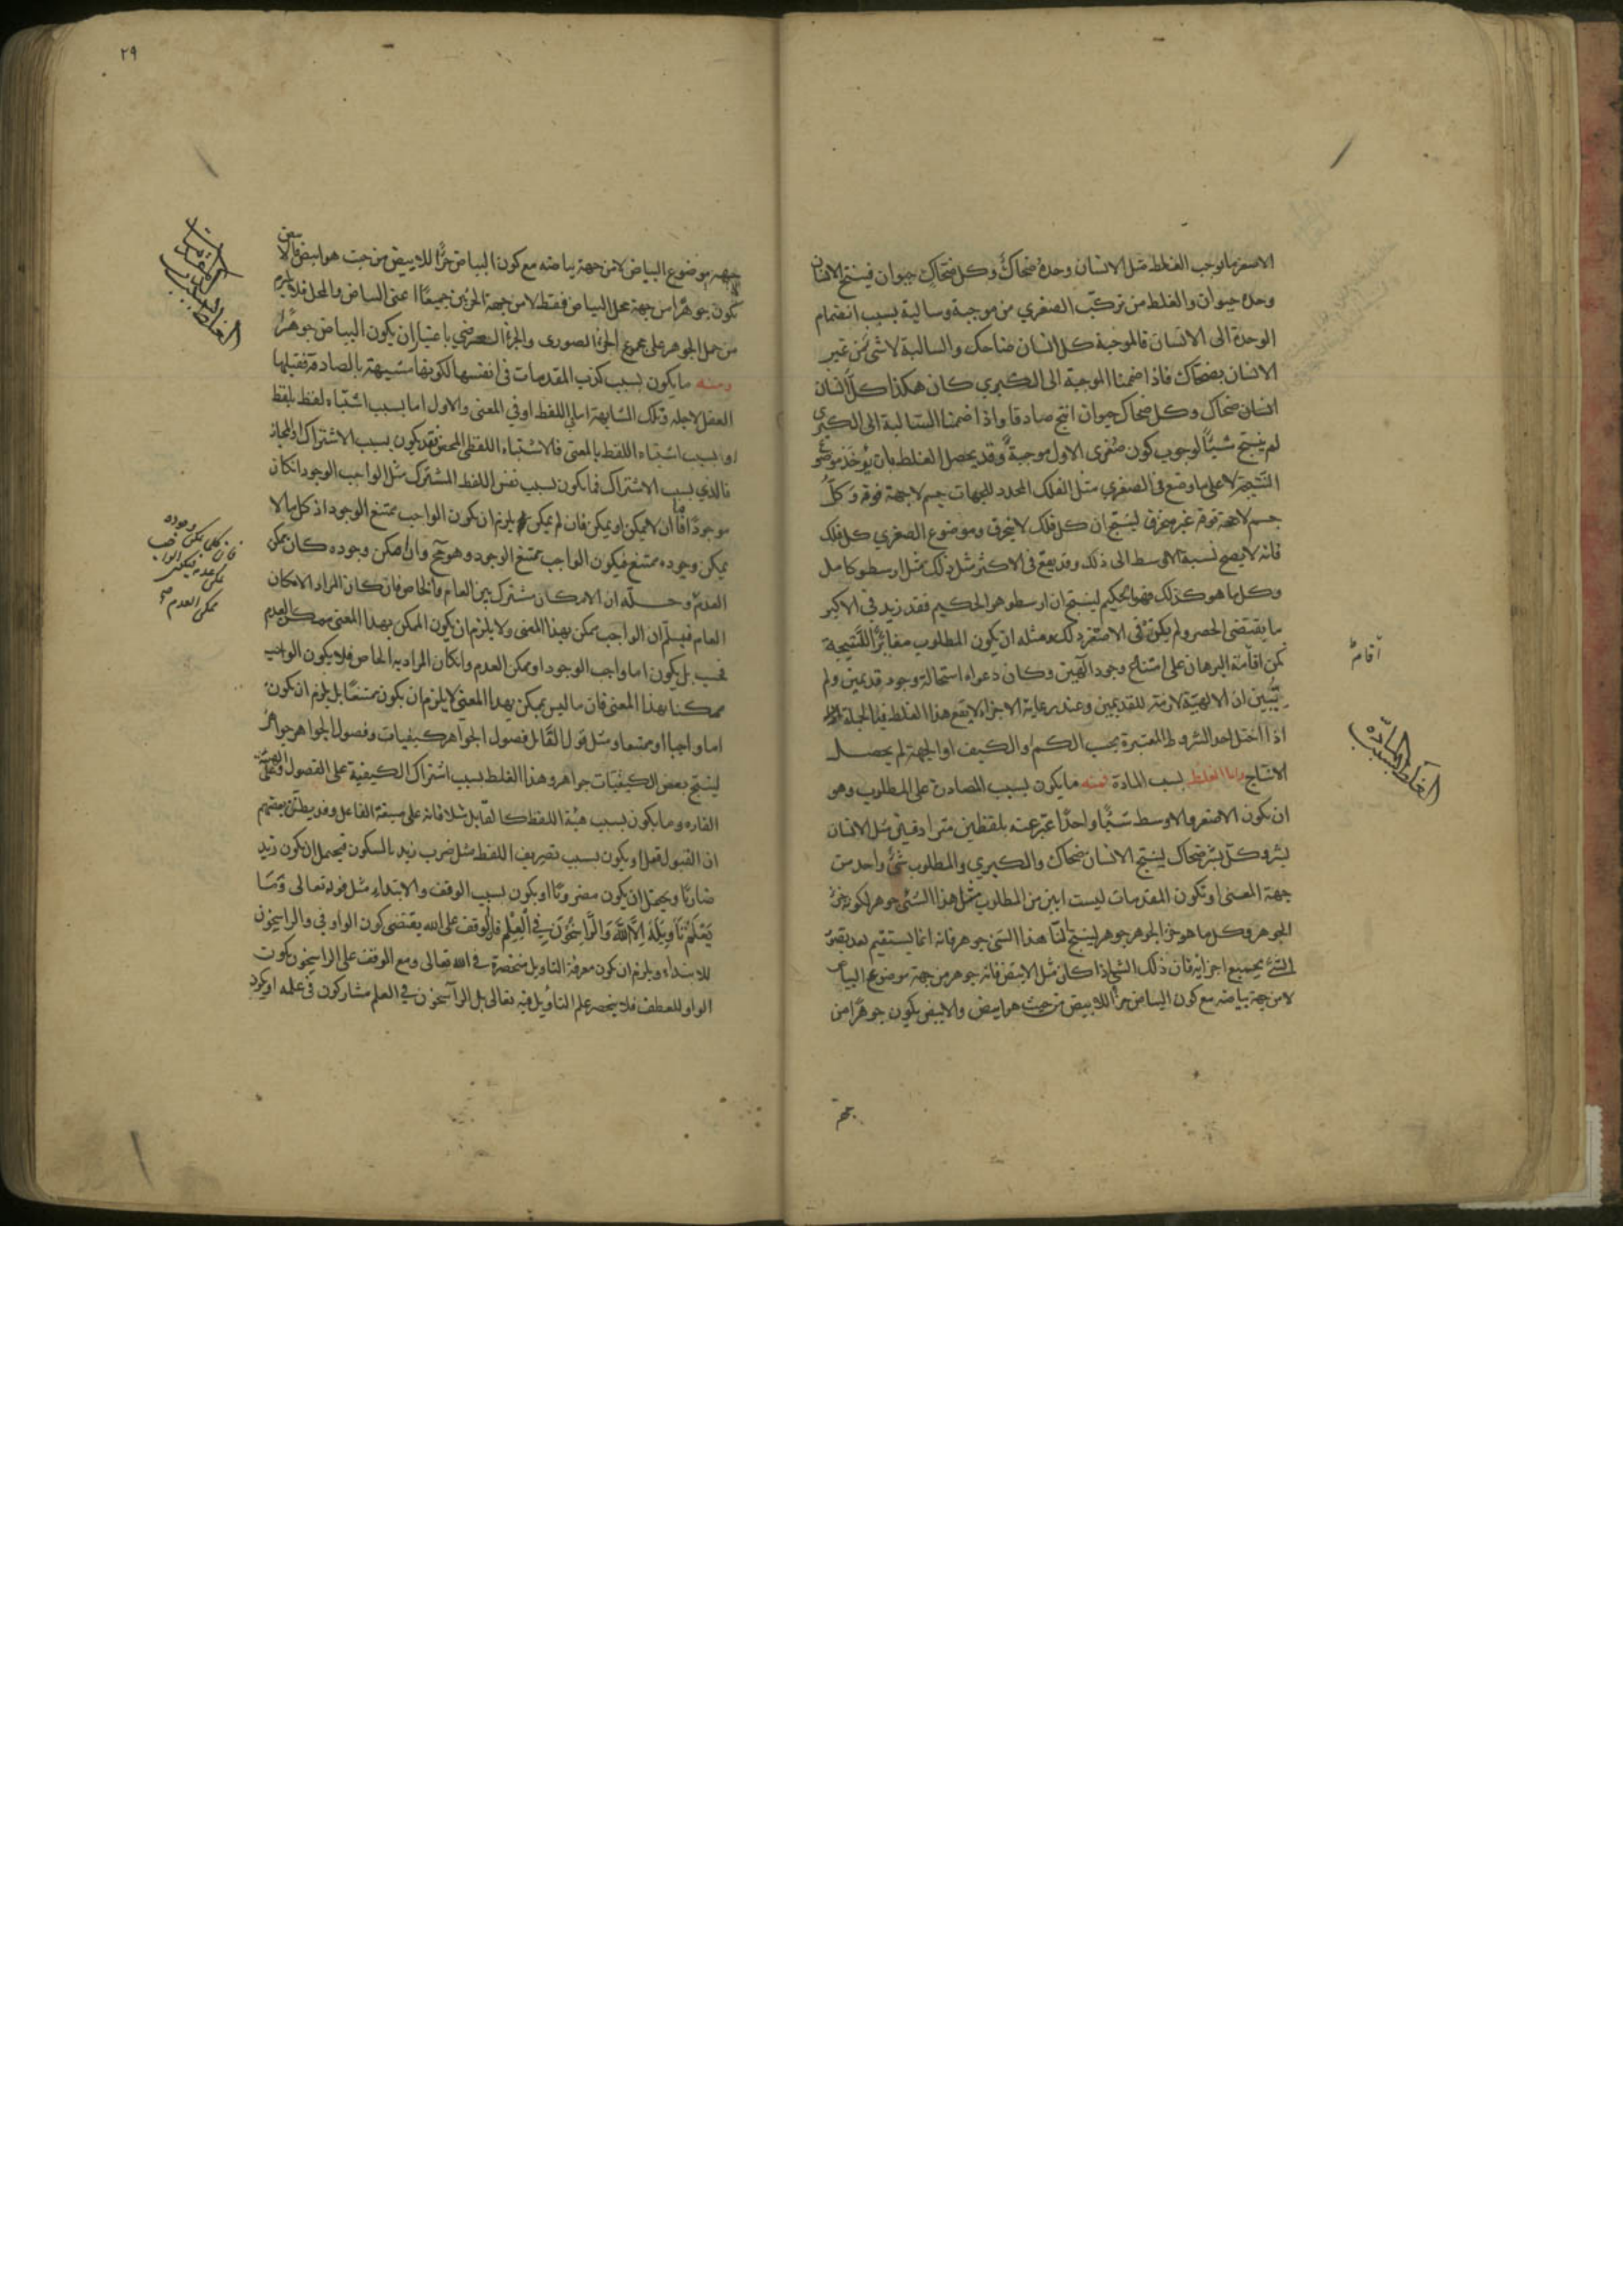 الاصغر ما يوجب الغلط مثل الانسان وحده ضحاك وكل ضحاك حيوان فينتج الانسان
وحده حيوان والغلط من تركب الصغري من موجبة وسالبة بسبب انضمام
الوحدة الى الانسان فالموجبة كل انسان ضاحك والسالبة لا شئ من غير
الانسان بضحاك فاذا ضممنا الموجبة الى الكبري كان هكذا كل انسان
انسان ضحاك وكل ضحاك حيوان انتج صادقا واذا ضممنا السالبة الى الكبرى
لم ينتج شيئًا لوجوب كون صغرى الاول موجبة وقد يحصل الغلط بان يؤخذ موضوع
النتيجة لا على ما وضع فى الصغري مثل الفلك المحدد للجهات جسم لا جهة فوقه وكلُّ
جسم لا جهة فوقه غير منخرق لينتج ان كل فلك لا ينخرق وموضوع الصغري كل فلك
فانه لا يصح نسبة الاوسط الى ذلك وقد يقع فى الاكثر مثل ذلك مثل ارسطو كامل
وكل ما هو كذلك فهو الحكيم لينتج ان ارسطو هو الحكيم فقد زيد فى الاكبر
ما يقتضى الحصر ولم يكن فى الاصغر ذلك ومثله ان يكون المطلوب مغائرًا للنتيجة
كمن اقامة البرهان على امتناع وجود الهين وكان دعواه استحالة وجود قديمين ولم
يتبين ان الالهية لازمة للقديمين وعند رعاية الاجزاء لا يقع هذا الغلط فبالجملة
اذا اختل احد الشروط المعتبرة بحسب الكم او الكيف او الجهة لم يحصل
الانتاج واما الغلط بسبب المادة فمنه ما يكون بسبب المصادرة على المطلوب وهو
ان يكون الاصغر والاوسط شيئًا واحدًا عبّر عنه بلفظين مترادفين مثل الانسان
بشر وكل بشر ضحاك لينتج الانسان ضحاك والكبري والمطلوب شئ واحد من
جهة المعنى او تكون المقدمات ليست ابين من المطلوب مثل هذا الشئ جوهر لكونه جزء
الجوهر وكل ما هو جزء الجوهر جوهر لينتج لنا هذا الشئ جوهر فانه انما يستقيم بعد
الشئ بجميع اجزائه فان ذلك الشئ اذا كان مثل الابيض فانه جوهر من جهة موضوع البياض
لا من جهة بياضه مع كون البياض جزءًا للابيض من حيث هو ابيض والابيض يكون جوهرًا من
جهة
اقامة
الغلط بسبب المادة
٢٩
جهة موضوع البياض لا من جهة بياضه مع كون البياض جزءًا للابيض من حيث هو ابيض فالابيض
يكون جوهرًا من جهة محل البياض فقط لا من جهة الجزئين جميعًا اعنى البياض والمحل فلا يلزم
من حمل الجوهر على مجموع الجزء الصورى والجزء العرضي باعتبار ان يكون البياض جوهرًا
ومنه ما يكون بسبب كذب المقدمات فى انفسها لكونها مشبهة بالصادقة فقبلها
العقل لاجله وتلك المشابهة اما في اللفظ او في المعنى والاول اما بسبب اشتباه لفظ بلفظ
او بسبب اشتباه اللفظ بالمعنى فالاشتباه اللفظي المحض فقد يكون بسبب الاشتراك او المجاز
فالذي بسبب الاشتراك فما يكون بسبب نفس اللفظ المشترك مثل الواجب الوجود ان كان
موجودًا فاما ان لا يمكن او يمكن فان لم يمكن يلزم ان يكون الواجب ممتنع الوجود اذ كل ما لا
يمكن وجوده ممتنع فيكون الواجب ممتنع الوجود وهو مح وان امكن وجوده كان ممكن
العدم وحله ان الامكان مشترك بين العام والخاص فان كان المراد الامكان
العام فيسلم ان الواجب ممكن بهذا المعنى ولا يلزم ان يكون الممكن بهذا المعنى ممكن العدم
فحسب بل يكون اما واجب الوجود او ممكن العدم وان كان المراد به الخاص فلا يكون الواجب
ممكنا بهذا المعنى فان ما ليس بممكن بهذا المعنى لا يلزم ان يكون ممتنعًا بل يلزم ان يكون
اما واجبا او ممتنعا ومثل قول القائل فصول الجواهر كيفيات وفصول الجواهر جواهر
لينتج بعض الكيفيات جواهر وهذا الغلط بسبب اشتراك الكيفية على الفصول وعلى الهيئة
القاره وما يكون بسبب هيئة اللفظ كالقابل مثلا فانه على صيغة الفاعل وقد يظن بعضهم
ان القبول فعل او يكون بسبب تصريف اللفظ مثل ضرب زيد بالسكون فيحتمل ان يكون زيد
ضاربًا ويحتمل ان يكون مضروبًا او يكون بسبب الوقف والابتداء مثل قوله تعالى وَمَا
يَعْلَمُ تَأْوِيلَهُ إِلَّا اللَّهُ وَالرَّاسِخُونَ فِي الْعِلْمِ فالوقف على الله يقتضى كون الواو في والراسخون
للابتداء ويلزم ان يكون معرفة التاويل منحصرة في الله تعالى ومع الوقف على الراسخون يكون
الواو للعطف فلا ينحصر علم التأويل فيه تعالى بل الراسخون في العلم مشاركون فى علمه او يكون
الغلط بسبب كذب المقدمات
فان كان يمكن وجوده
يمكن عدمه فيكون الواجب
ممكن العدم صح